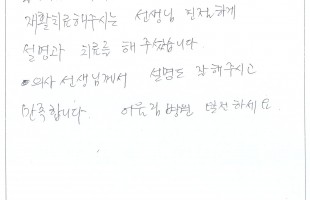 재활치료해주시는 선생님 친절하게
설명과 치료를 해 주셨습니다.
•의사 선생님께서 설명도 잘해주시고
만족합니다. 어울림병원 발전하세요.